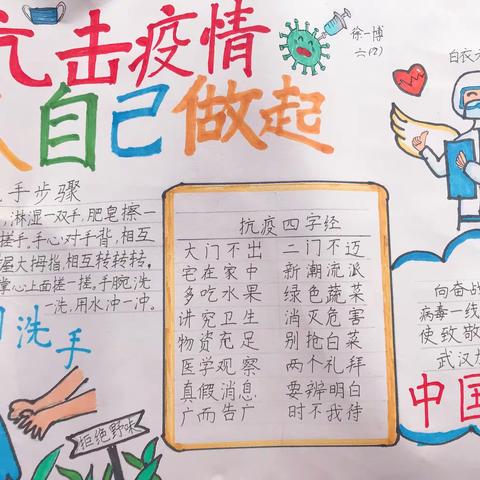 抗击疫情
从自己做起
徐一博
六(2)
白衣
手步骤
，淋湿一双手，肥皂擦一
搓手，手心对手背，相互
握大拇指，相互转转转。
掌心上面搓一搓。手腕洗
一洗，用水冲一冲。
洗手
拒绝野味
抗疫四字经
大门不出 二门不迈
宅在家中 新潮流派
多吃水果 绿色蔬菜
讲究卫生 消灭危害
物资充足 别抢白菜
医学观察 两个礼拜
真假消息 要辨明白
广而告广 时不我待
向奋战
病毒一线
使致敬
武汉加
中国